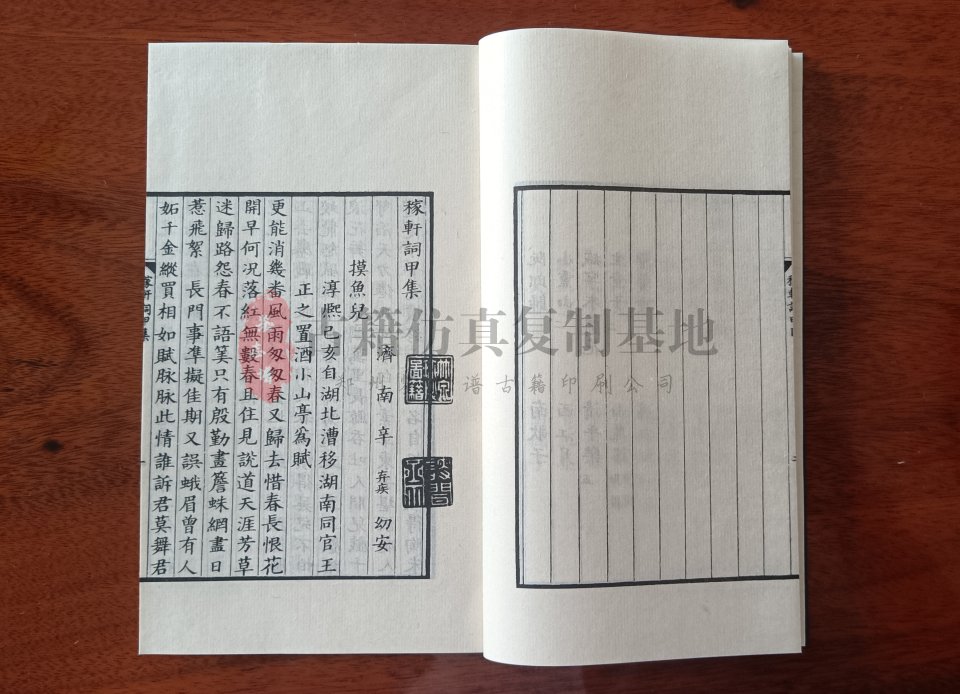 稼軒詞甲集
濟南辛棄疾幼安
摸魚兒
淳熙己亥自湖北漕移湖南同官王
正之置酒小山亭為賦
更能消幾畨風雨匆匆春又歸去惜春長恨花
開早何況落紅無數春且住見說道天涯芳草
迷歸路怨春不語筭只有殷勤畫簷蛛網盡日
惹飛絮長門事準擬佳期又誤蛾眉曾有人
妬千金縱買相如賦脉脉此情誰訴君莫舞君
稼軒詞甲集
古籍仿真复制基地
谱古籍印刷公司